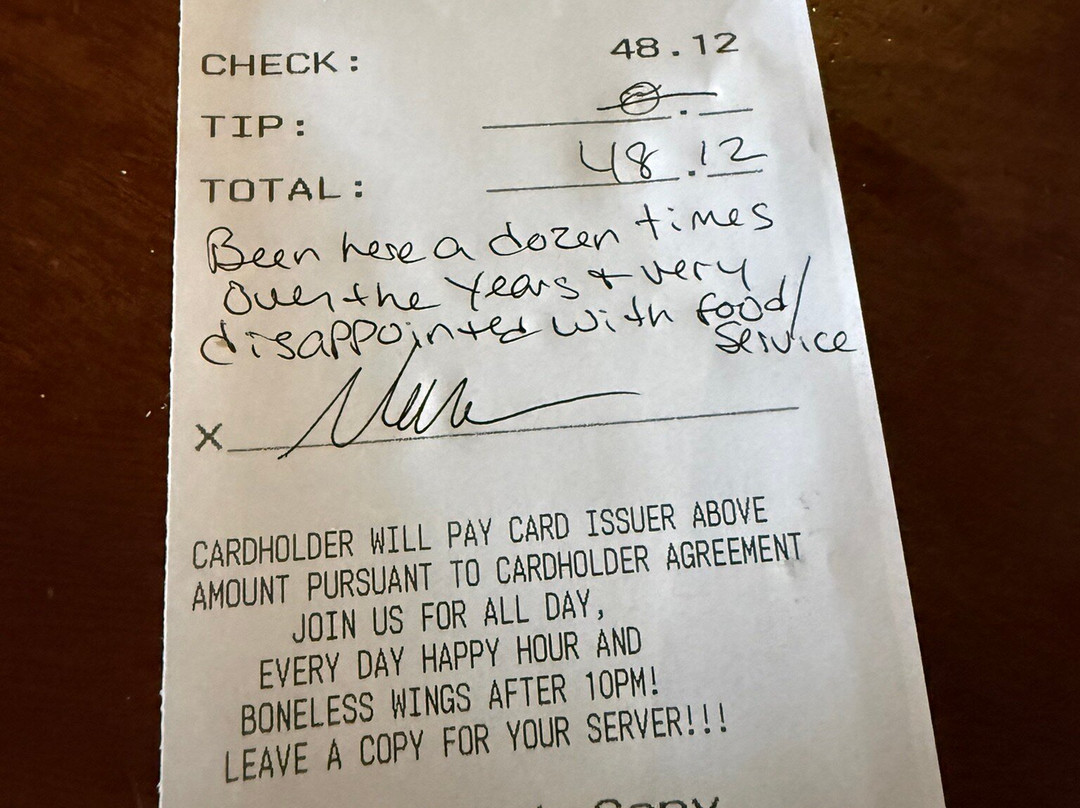 CHECK: 48.12
TIP: 0.
TOTAL: 48.12
Been here a dozen times
over the years + very
disappointed with food/
service
X
CARDHOLDER WILL PAY CARD ISSUER ABOVE
AMOUNT PURSUANT TO CARDHOLDER AGREEMENT
JOIN US FOR ALL DAY,
EVERY DAY HAPPY HOUR AND
BONELESS WINGS AFTER 10PM!
LEAVE A COPY FOR YOUR SERVER!!!
Copy